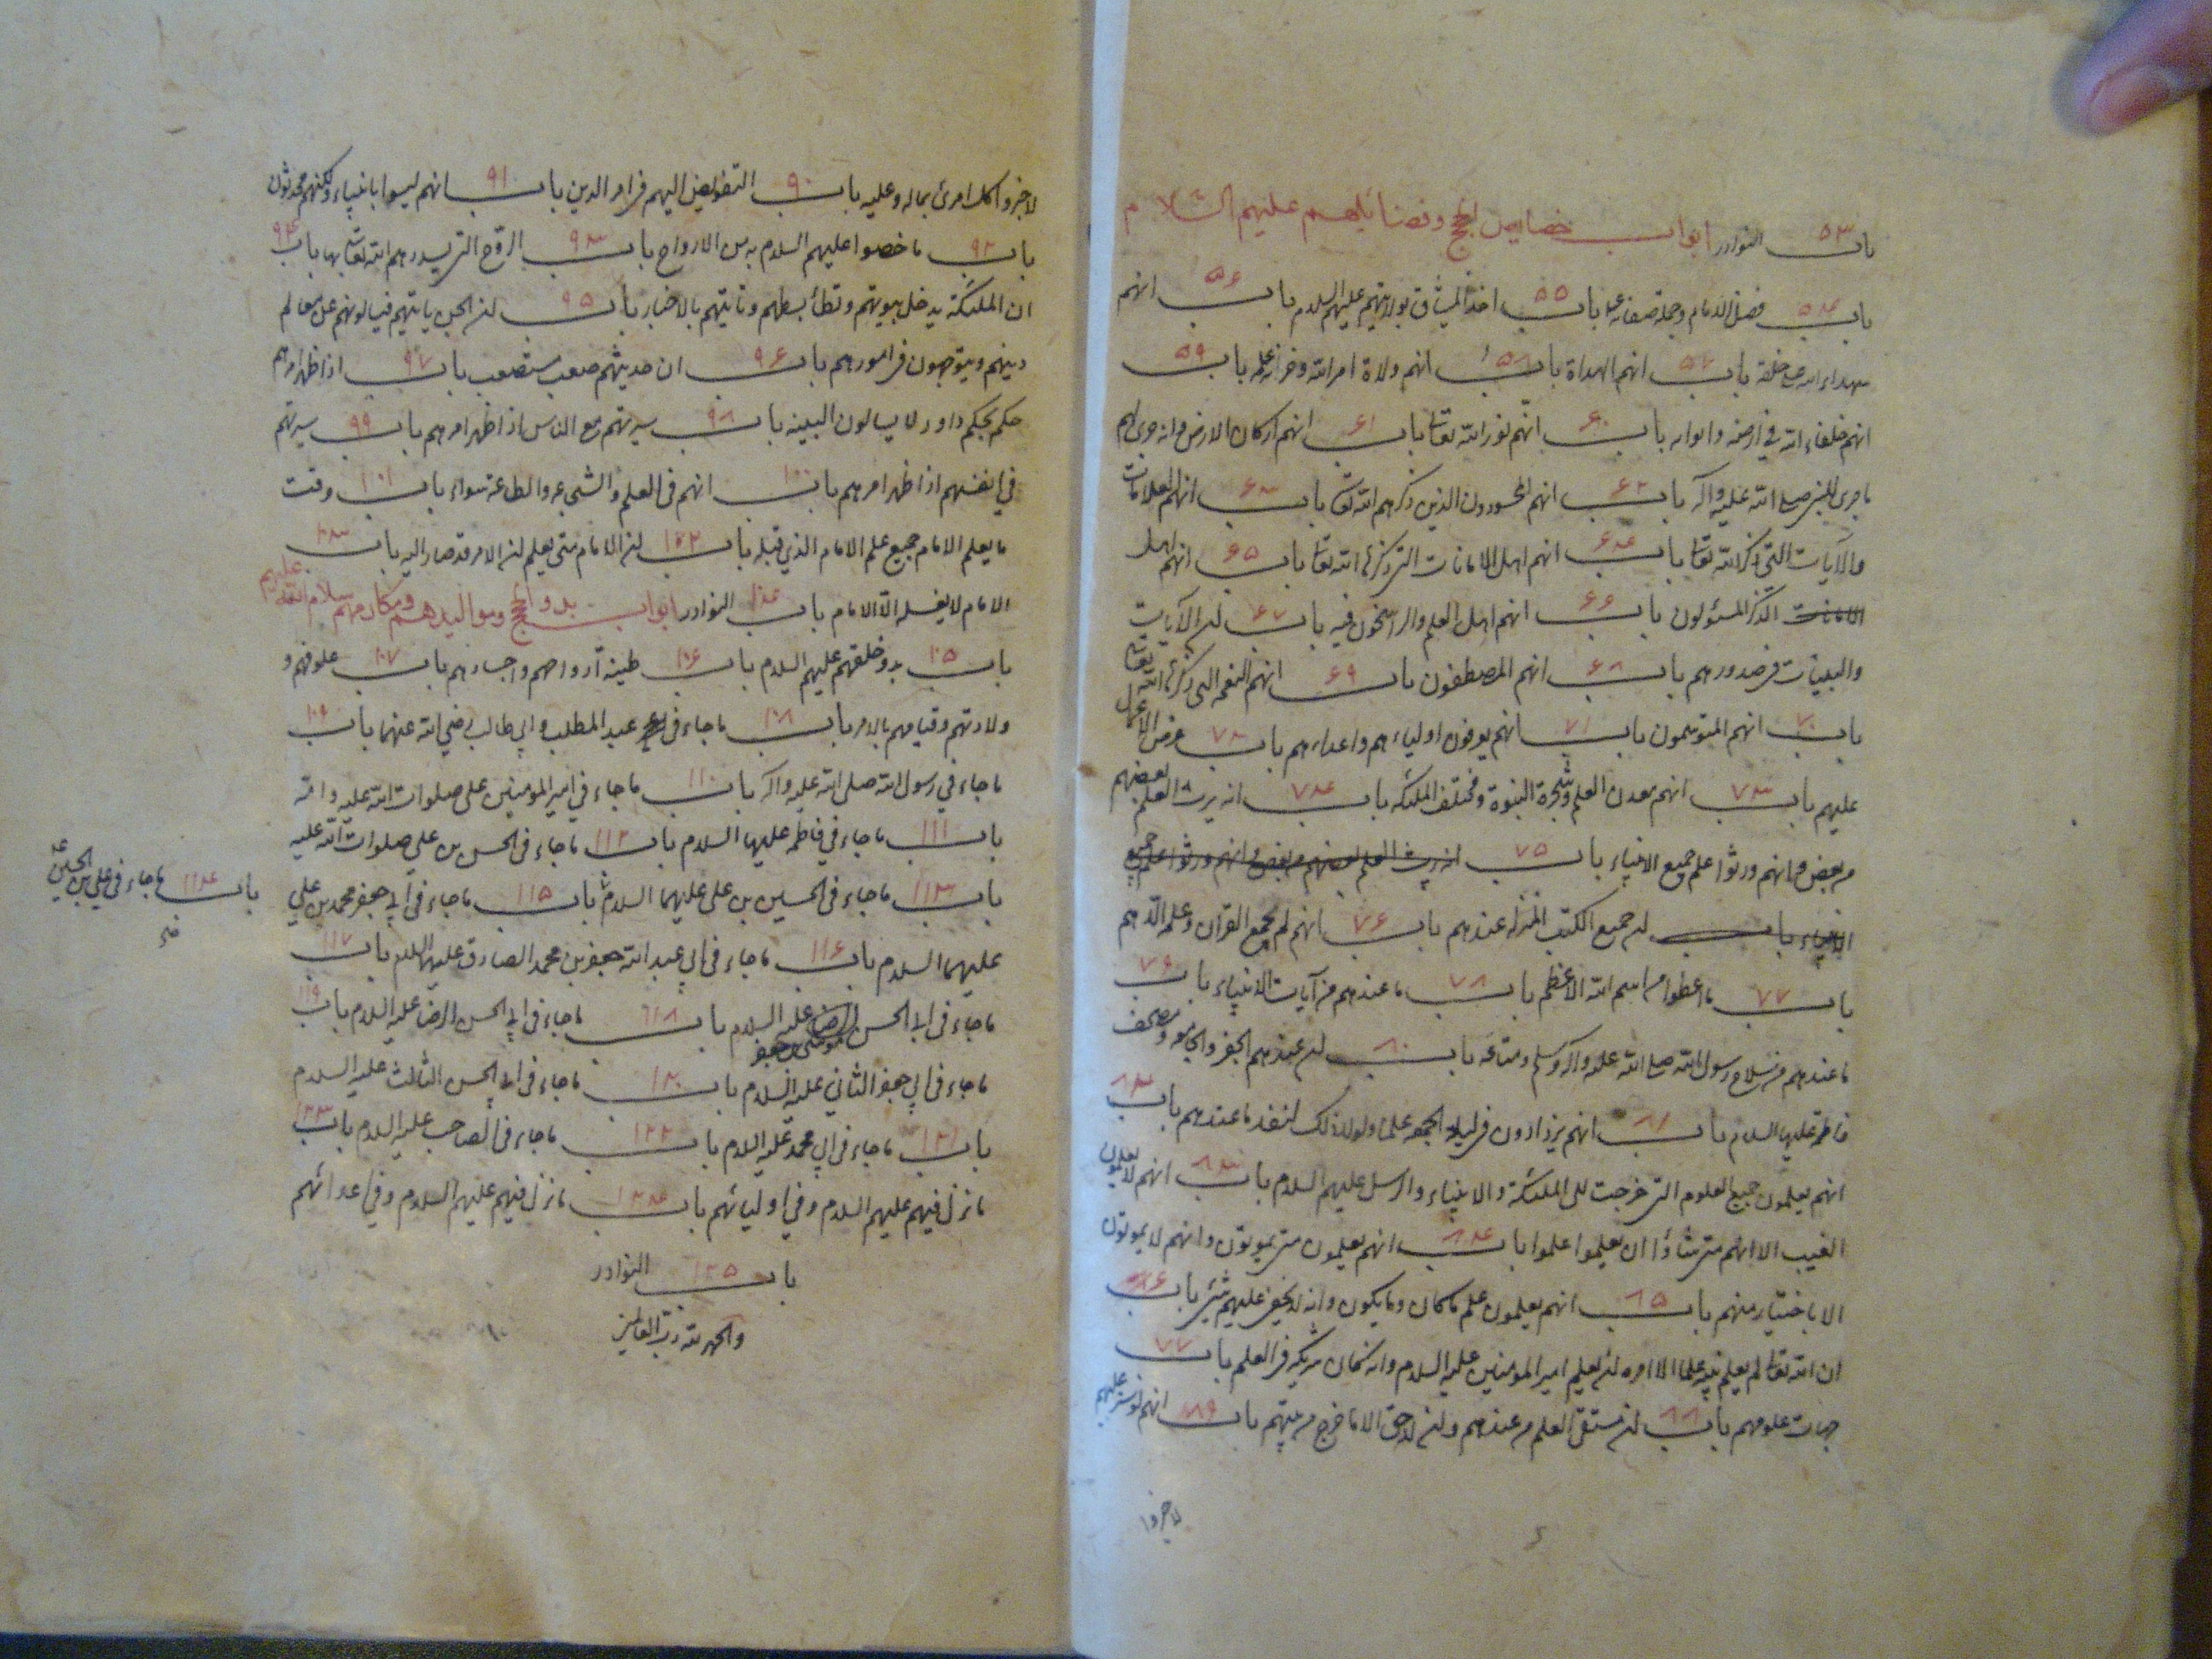 باب ۵۳ النوادر ابواب خصایص الحجج وفضائلهم علیهم السلام
باب ۵۴ فضل الامام وجملة صفاته باب ۵۵ اخذ المیثاق بولایتهم علیهم السلام باب ۵۶ انهم
شهداء الله علی خلقه باب ۵۷ انهم الهداة باب ۵۸ انهم ولاة امر الله وخزنة علمه باب ۵۹
انهم خلفاء الله في ارضه وابوابه باب ۶۰ انهم نور الله تعالی باب ۶۱ انهم ارکان الارض وانه جری لهم
ما جری للنبی صلی الله علیه وآله باب ۶۲ انهم المحسودون الذین ذکرهم الله تعالی باب ۶۳ انهم العلامات
والآیات التی ذکر الله تعالی باب ۶۴ انهم اهل الامانات التی ذکرها الله تعالی باب ۶۵ انهم اهل
الذکر المسئولون باب ۶۶ انهم اهل العلم والراسخون فیه باب ۶۷ ان الآیات
والبینات فی صدورهم باب ۶۸ انهم المصطفون باب ۶۹ انهم النعمة التی ذکرها الله تعالی
باب ۷۰ انهم المتوسمون باب ۷۱ انهم یعرفون اولیاءهم واعداءهم باب ۷۲ عرض الاعمال
علیهم باب ۷۳ انهم معدن العلم وشجرة النبوة ومختلف الملئکة باب ۷۴ انه یرث العلم بعضهم
من بعض وانهم ورثوا علم جمیع الانبیاء باب ۷۵ ان یرث العلم بعضهم من بعض وانهم ورثوا علم جمیع
الانبیاء باب ان جمیع الکتب المنزلة عندهم باب ۷۶ انهم لهم جمع القرآن وعلمه کله
باب ۷۷ ما اعطوا من اسم الله الاعظم باب ۷۸ ما عندهم من آیات الانبیاء باب ۷۹
ما عندهم من سلاح رسول الله صلی الله علیه وآله وسلم ومتاعه باب ۸۰ ان عندهم الجفر والجامعة ومصحف
فاطمة علیها السلام باب ۸۱ انهم یزدادون فی لیلة الجمعة علما ولولا ذلک لنفد ما عندهم باب ۸۲
انهم یعلمون جمیع العلوم التی خرجت الی الملئکة والانبیاء والرسل علیهم السلام باب ۸۳ انهم لا یعلمون
الغیب الا انهم متی شاؤا ان یعلموا علموا باب ۸۴ انهم یعلمون متی یموتون وانهم لا یموتون
الا باختیار منهم باب ۸۵ انهم یعلمون علم ما کان وما یکون وانه لا یخفی علیهم شیء باب ۸۶
ان الله تعالی لم یعلم نبیه علما الا امره ان یعلم امیر المؤمنین علیه السلام وانه کان شریکه فی العلم باب ۸۷
جهات علومهم باب ۸۸ ان مستقی العلم من عندهم وان لا حق الا ما خرج من بیتهم باب ۸۹ انهم لو ستر علیهم
لاخبروا
لاخبروا کل امرئ بما له وعلیه باب ۹۰ التفویض الیهم فی امر الدین باب ۹۱ انهم لیسوا بانبیاء ولکنهم محدثون
باب ۹۲ ما خصوا علیهم السلام به من الارواح باب ۹۳ الروح التی یسددهم الله تعالی بها باب ۹۴
ان الملئکة یدخل بیوتهم وتطأ بسطهم وتأتیهم بالاخبار باب ۹۵ ان الجن یاتیهم فیسالونهم عن معالم
دینهم ویتوجهون فی امورهم باب ۹۶ ان حدیثهم صعب مستصعب باب ۹۷ اذا ظهر امرهم
حکم بحکم داود ولا یسالون البینة باب ۹۸ سیرتهم مع الناس اذا ظهر امرهم باب ۹۹ سیرتهم
في انفسهم اذا ظهر امرهم باب ۱۰۰ انهم فی العلم والشجاعة والطاعة سواء باب ۱۰۱ وقت
ما یعلم الامام جمیع علم الامام الذي قبله باب ۱۰۲ ان الامام متی یعلم ان الامر قد صار الیه باب ۱۰۳
الامام لا یغسله الا الامام باب ۱۰۴ النوادر ابواب بدو الحجج وموالیدهم ومکارمهم سلام الله علیهم
باب ۱۰۵ بدو خلقهم علیهم السلام باب ۱۰۶ طینة ارواحهم واجسادهم باب ۱۰۷ علوقهم و
ولادتهم وقیامهم بالامر باب ۱۰۸ ما جاء في عبد المطلب وابي طالب رضي الله عنهما باب ۱۰۹
ما جاء في رسول الله صلی الله علیه وآله باب ۱۱۰ ما جاء في امیر المؤمنین علی صلوات الله علیه وآله
باب ۱۱۱ ما جاء في فاطمة علیها السلام باب ۱۱۲ ما جاء في الحسن بن علي صلوات الله علیه
باب ۱۱۳ ما جاء في الحسین بن علی علیهما السلام باب ۱۱۵ ما جاء في ابي جعفر محمد بن علي
باب ۱۱۴ ما جاء في علي بن الحسین
علیهما السلام باب ۱۱۶ ما جاء في ابي عبد الله جعفر بن محمد الصادق علیهما السلام باب ۱۱۷
ما جاء في ابی الحسن موسی بن جعفر علیه السلام باب ۱۱۸ ما جاء في ابي الحسن الرضا علیه السلام باب ۱۱۹
ما جاء في ابي جعفر الثاني علیه السلام باب ۱۲۰ ما جاء في ابي الحسن الثالث علیه السلام
باب ۱۲۱ ما جاء في ابي محمد علیه السلام باب ۱۲۲ ما جاء في الصاحب علیه السلام باب ۱۲۳
ما نزل فیهم علیهم السلام وفي اولیائهم باب ۱۲۴ ما نزل فیهم علیهم السلام وفي اعدائهم
باب ۱۲۵ النوادر
والحمد لله رب العالمین